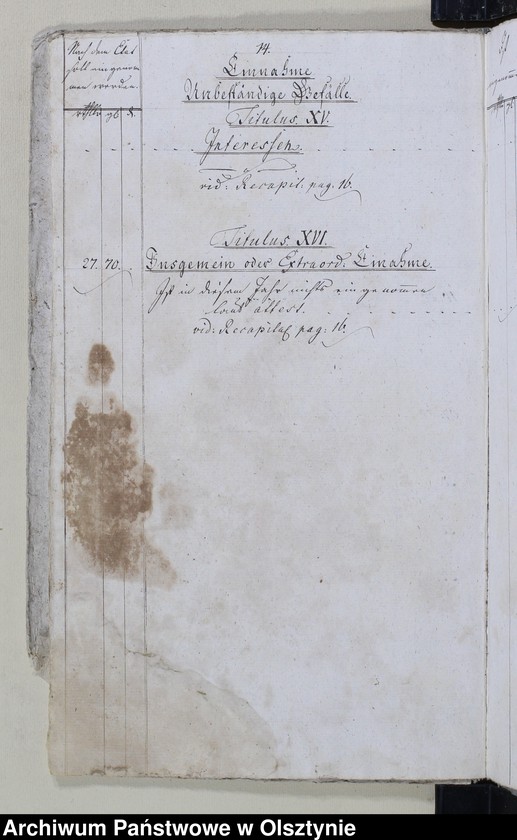 14.
Nach dem Etat
soll eingenom
men werden.
Einnahme
Unbeständige Gefälle.
Titulus. XV.
rthlr gl. d.
Interessen.
vid: Recapit: pag: 16.
Titulus. XVI.
27. 70. Insgemein oder Extraord: Einahme.
Ist in diesem Jahr nichts eingenommen
laut attest.
vid: Recapitul pag: 16.
Archiwum Państwowe w Olsztynie